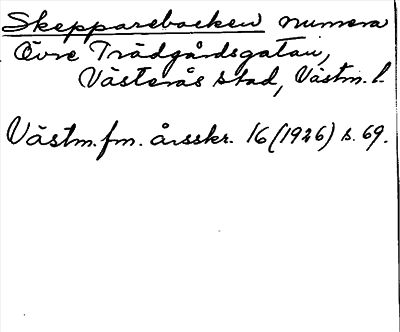 Skepparebacken numera
Övre Trädgårdsgatan,
Västerås stad, Västm. l.
Västm. fm. årsskr. 16 (1926) s. 69.